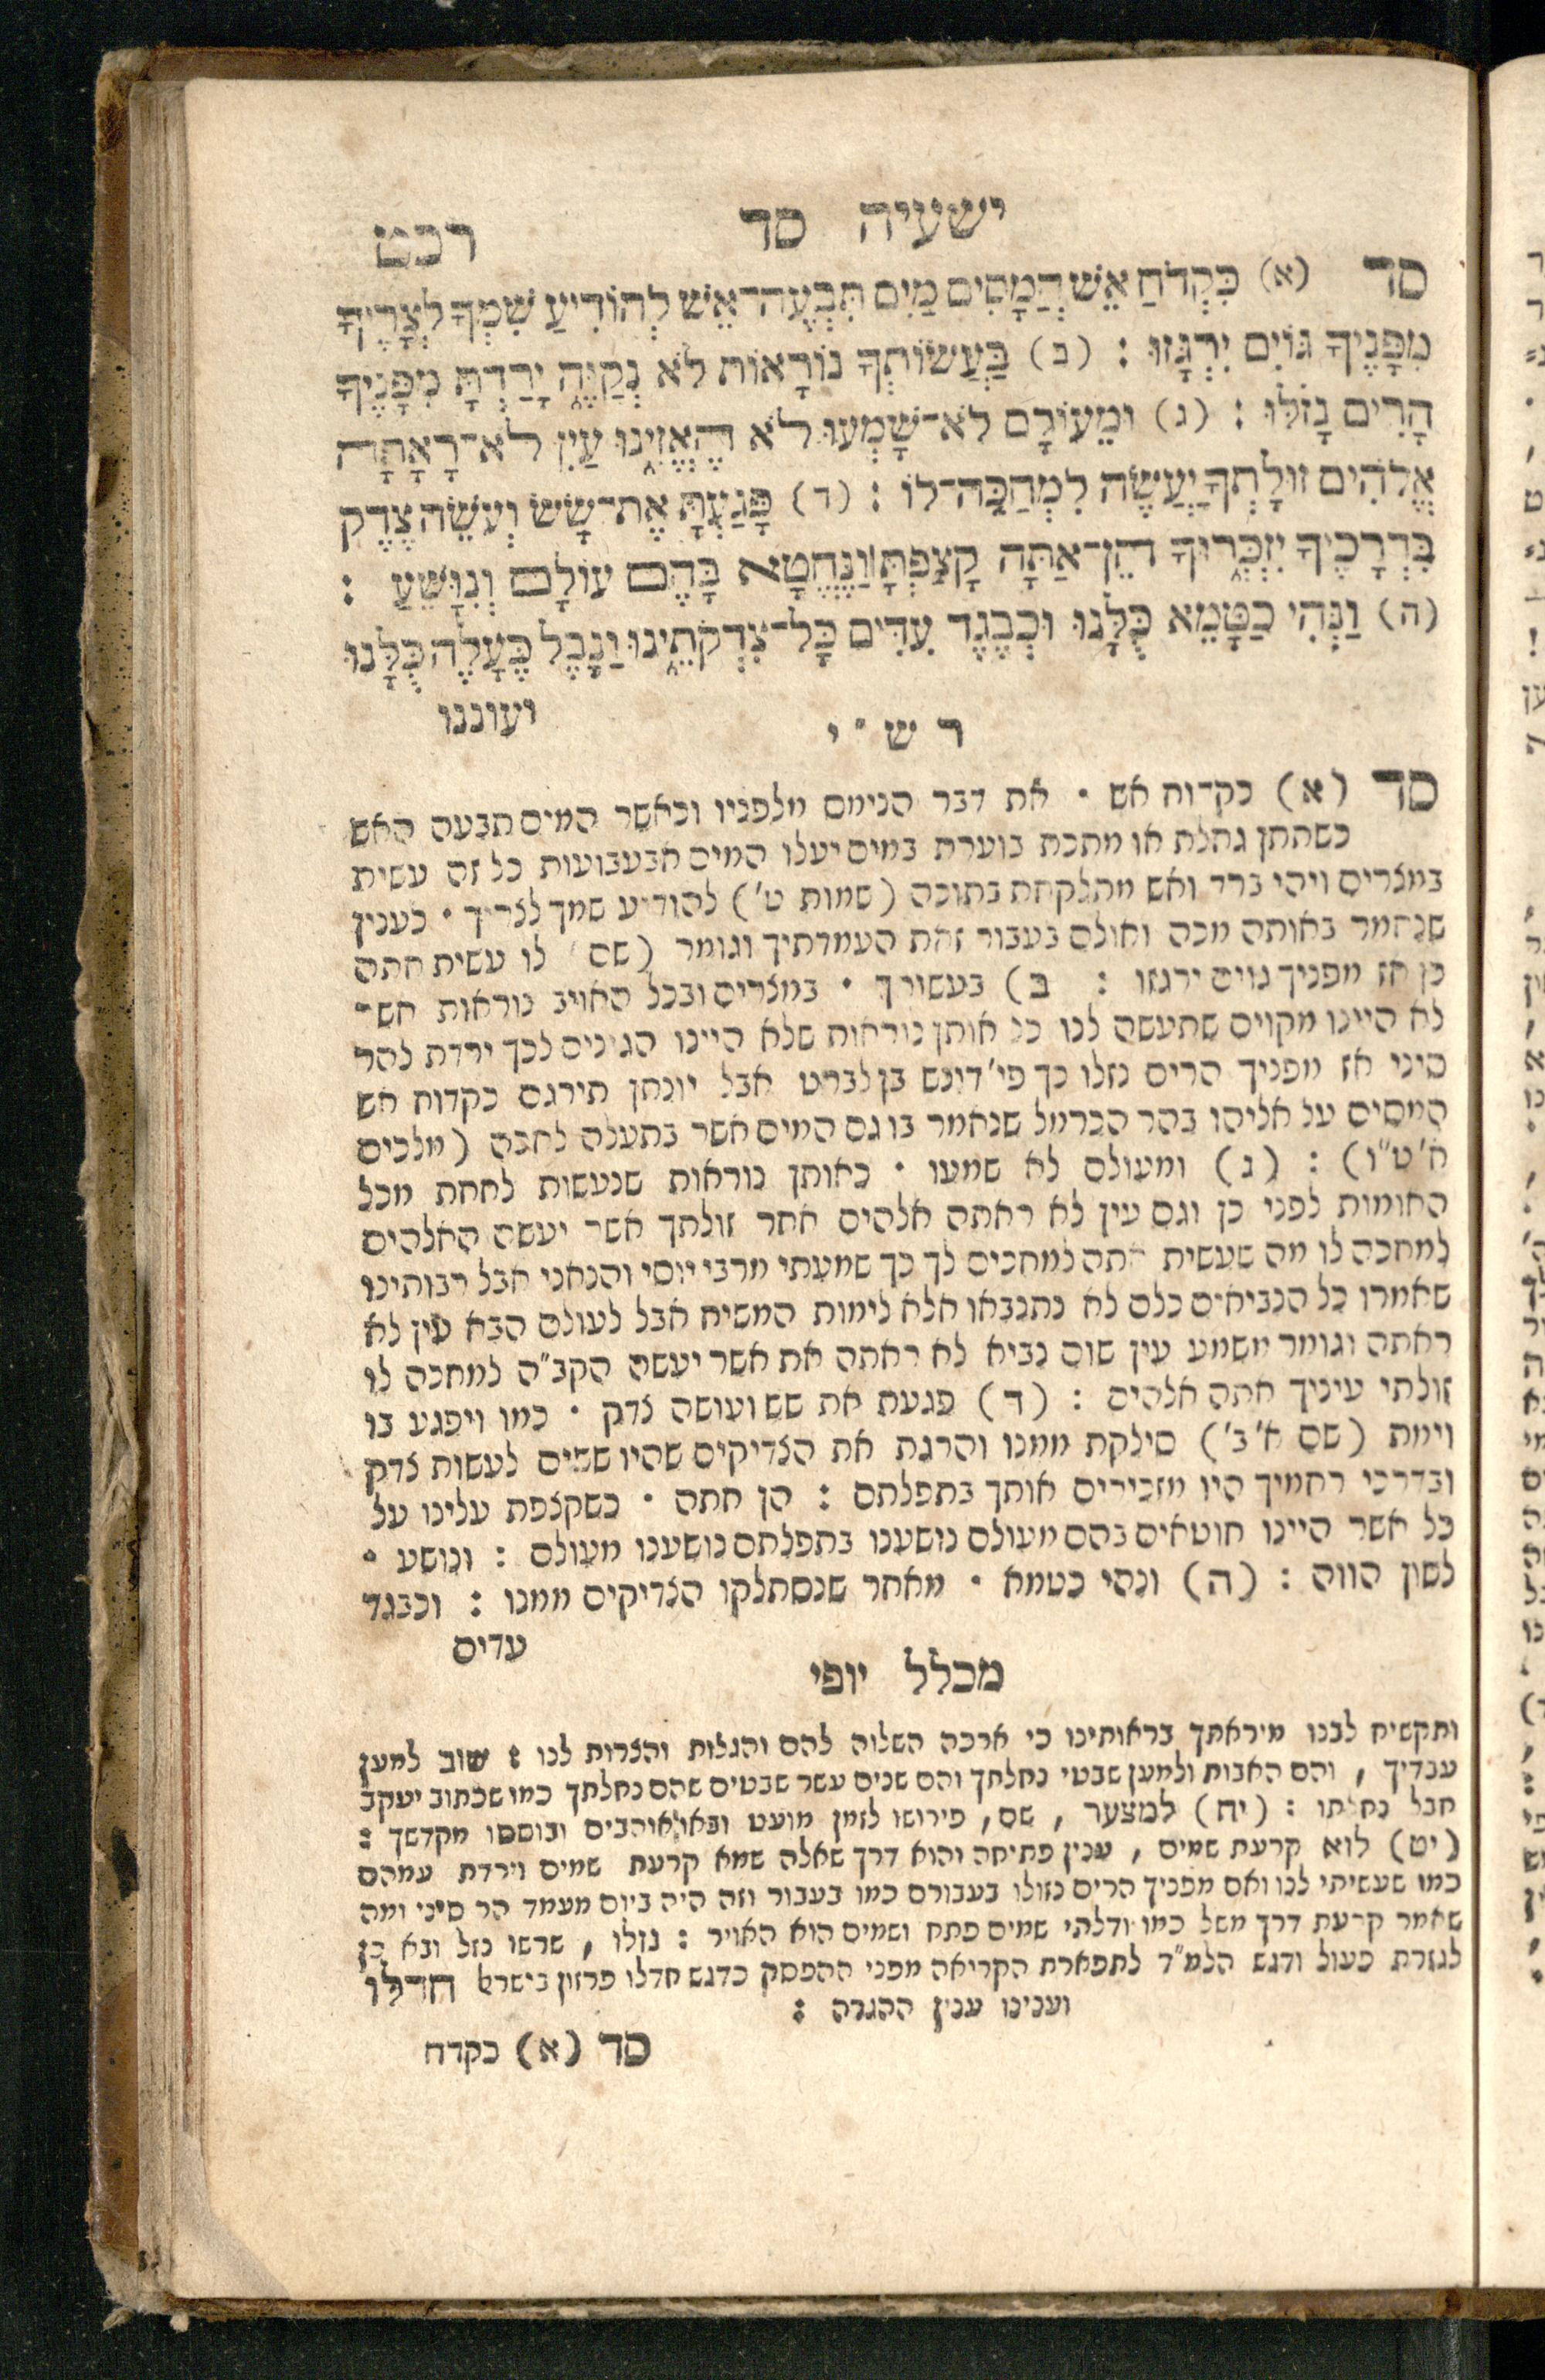 ישעיה סד רכט
סד (א) כִּקְדֹחַ אֵשׁ הֲמָסִים מַיִם תִּבְעֶה־אֵשׁ לְהוֹדִיעַ שִׁמְךָ לְצָרֶיךָ
מִפָּנֶיךָ גּוֹיִם יִרְגָּזוּ : (ב) בַּעֲשׂוֹתְךָ נוֹרָאוֹת לֹא נְקַוֶּה יָרַדְתָּ מִפָּנֶיךָ
הָרִים נָזֹלּוּ : (ג) וּמֵעוֹלָם לֹא־שָׁמְעוּ לֹא הֶאֱזִינוּ עַיִן לֹא־רָאָתָה
אֱלֹהִים זוּלָתְךָ יַעֲשֶׂה לִמְחַכֵּה־לוֹ : (ד) פָּגַעְתָּ אֶת־שָׂשׂ וְעֹשֵׂה צֶדֶק
בִּדְרָכֶיךָ יִזְכְּרוּךָ הֵן־אַתָּה קָצַפְתָּ וַנֶּחֱטָא בָּהֶם עוֹלָם וְנִוָּשֵׁעַ :
(ה) וַנְּהִי כַטָּמֵא כֻּלָּנוּ וּכְבֶגֶד עִדִּים כָּל־צִדְקֹתֵינוּ וַנָּבֶל כֶּעָלֶה כֻּלָּנוּ
ועוננו
ר ש " י
סד (א) כקדוח אש · את דבר הנימס מלפניו וכאשר המים תבעה האש
כשתתן גחלת או מתכת בוערת במים יעלו המים אבעבועות כל זה עשית
במצרים ויהי ברד ואש מתלקחת בתוכה (שמות ט') להודיע שמך לצריך · כענין
שנאמר באותה מכה ואולם בעבור זאת העמדתיך וגומר (שם לו עשית אתה
כן אז מפניך גוים ירגזו : ב) בעשותך · במצרים ובכל האויב נוראות אשר
לא היינו מקוים שתעשה לנו כל אותן נוראות שלא היינו הגונים לכך ירדת להר
סיני אז מפניך הרים נזלו כך פי' דונש בן לברט אבל יונתן תירגם כקדוח אש
המסים על אליהו בהר הכרמל שנאמר בו גם המים אשר בתעלה לחכה (מלכים
א' ט"ו) : (ג) ומעולם לא שמעו · כאותן נוראות שנעשות לאחת מכל
האומות לפני כן וגם עין לא ראתה אלהים אחר זולתך אשר יעשה האלהים
למחכה לו מה שעשית אתה למחכים לך כך שמעתי מרבי יוסי והנאני אבל רבותינו
שאמרו כל הנביאים כלם לא נתנבאו אלא לימות המשיח אבל לעולם הבא עין לא
ראתה וגומר משמע עין שום נביא לא ראתה את אשר יעשה הקב"ה למחכה לו
זולתי עיניך אתה אלהים : (ד) פגעת את שש ועושה צדק · כמו ויפגע בו
וימת (שם א' ב') סילקת ממנו והרגת את הצדיקים שהיו ששים לעשות צדק
ובדרכי רחמיך היו מזכירים אותך בתפלתם : הן אתה · כשקצפת עלינו על
כל אשר היינו חוטאים בהם מעולם נושענו בתפלתם נושענו מעולם : ונושע ·
לשון הווה : (ה) ונהי כטמא · מאחר שנסתלקו הצדיקים ממנו : וכבגד
עדים
מכלל יופי
ותקשיח לבנו מיראתך בראותינו כי ארכה השלוה להם והגלות והצרות לנו : שוב למען
עבדיך , והם האבות ולמען שבטי נחלתך והם שנים עשר שבטים שהם נחלתך כמו שכתוב יעקב
חבל נחלתו : (יח) למצער , שם, פירושו לזמן מועט ובאו אויבים ובוססו מקדשך :
(יט) לוא קרעת שמים , ענין פתיחה והוא דרך שאלה שמא קרעת שמים וירדת עמהם
כמו שעשיתי לנו ואם מפניך הרים נזולו בעבורם כמו בעבור וזה היה ביום מעמד הר סיני ומה
שאמר קרעת דרך משל כמו ודלתי שמים פתח ושמים הוא האויר : נזלו , שרשו נזל ובא כן
לגזרת פעול ודגש הלמ"ד לתפארת הקריאה מפני ההפסק כדגש חדלו פרזון בישראל חדלו
וענינו ענין ההגרה :
סד (א) כקדח